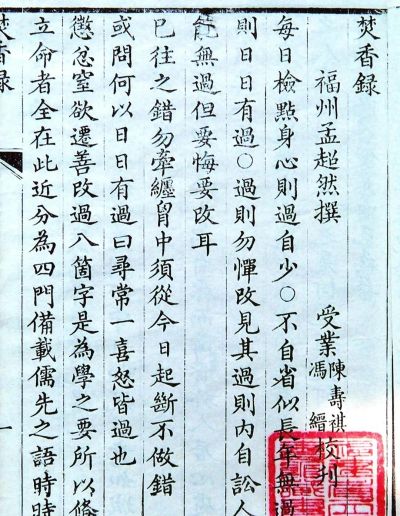 焚香録
福州孟超然撰 受業陳壽祺馮縉校刊
每日檢點身心則過自少○不自省似長年無過
則日日有過○過則勿憚改見其過則內自訟人
能無過但要悔要改耳
已往之錯勿牽纏胷中須從今日起斷不做錯
或問何以日日有過曰尋常一喜怒皆過也
懲忿窒欲遷善改過八箇字是為學之要所以條
立命者全在此近分為四門備載儒先之語時時
焚香録 一